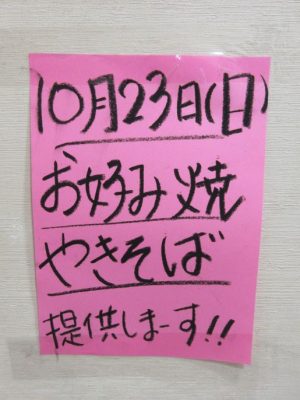 10月23日(日)
お好み焼
やきそば
提供しまーす!!